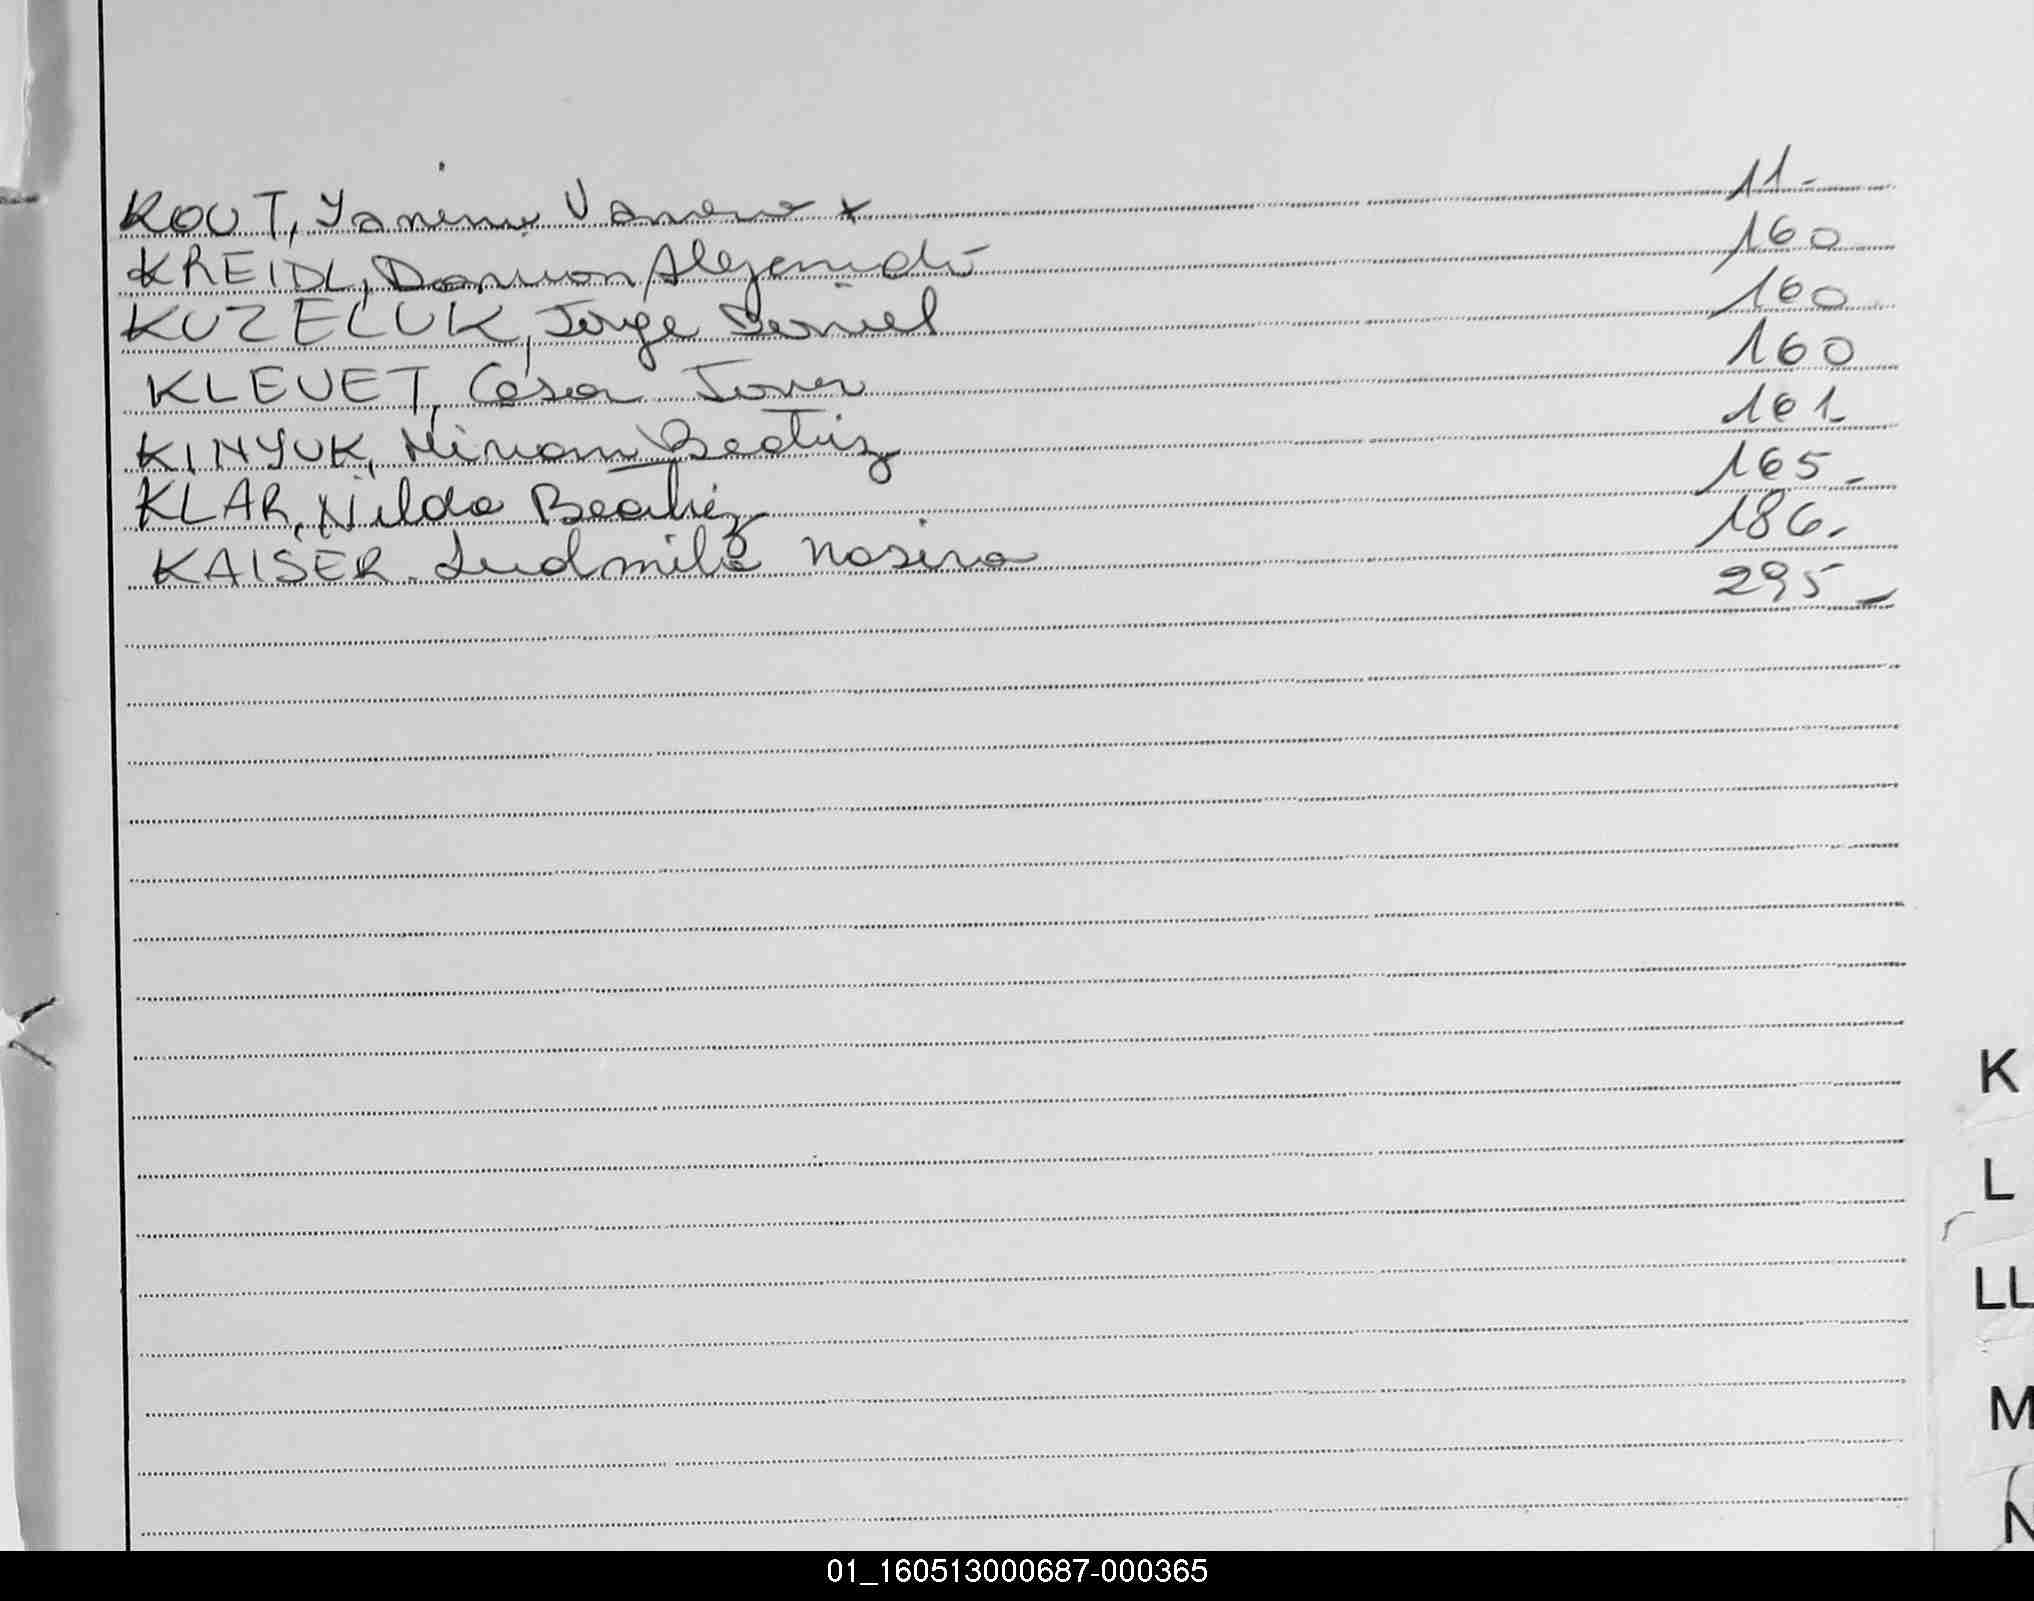 KOUT, Yanina Vanesa x 11-
KREIDL, Damian Alejandro 160
KUZELUK, Jorge Daniel 160
KLEUET, Cesar Javier 160
KINYUK, Miriam Beatriz 161
KLAR, Nilda Beatriz 165-
KAISER Ludmila 186.
295-
K
L
LL
M
N
01_160513000687-000365